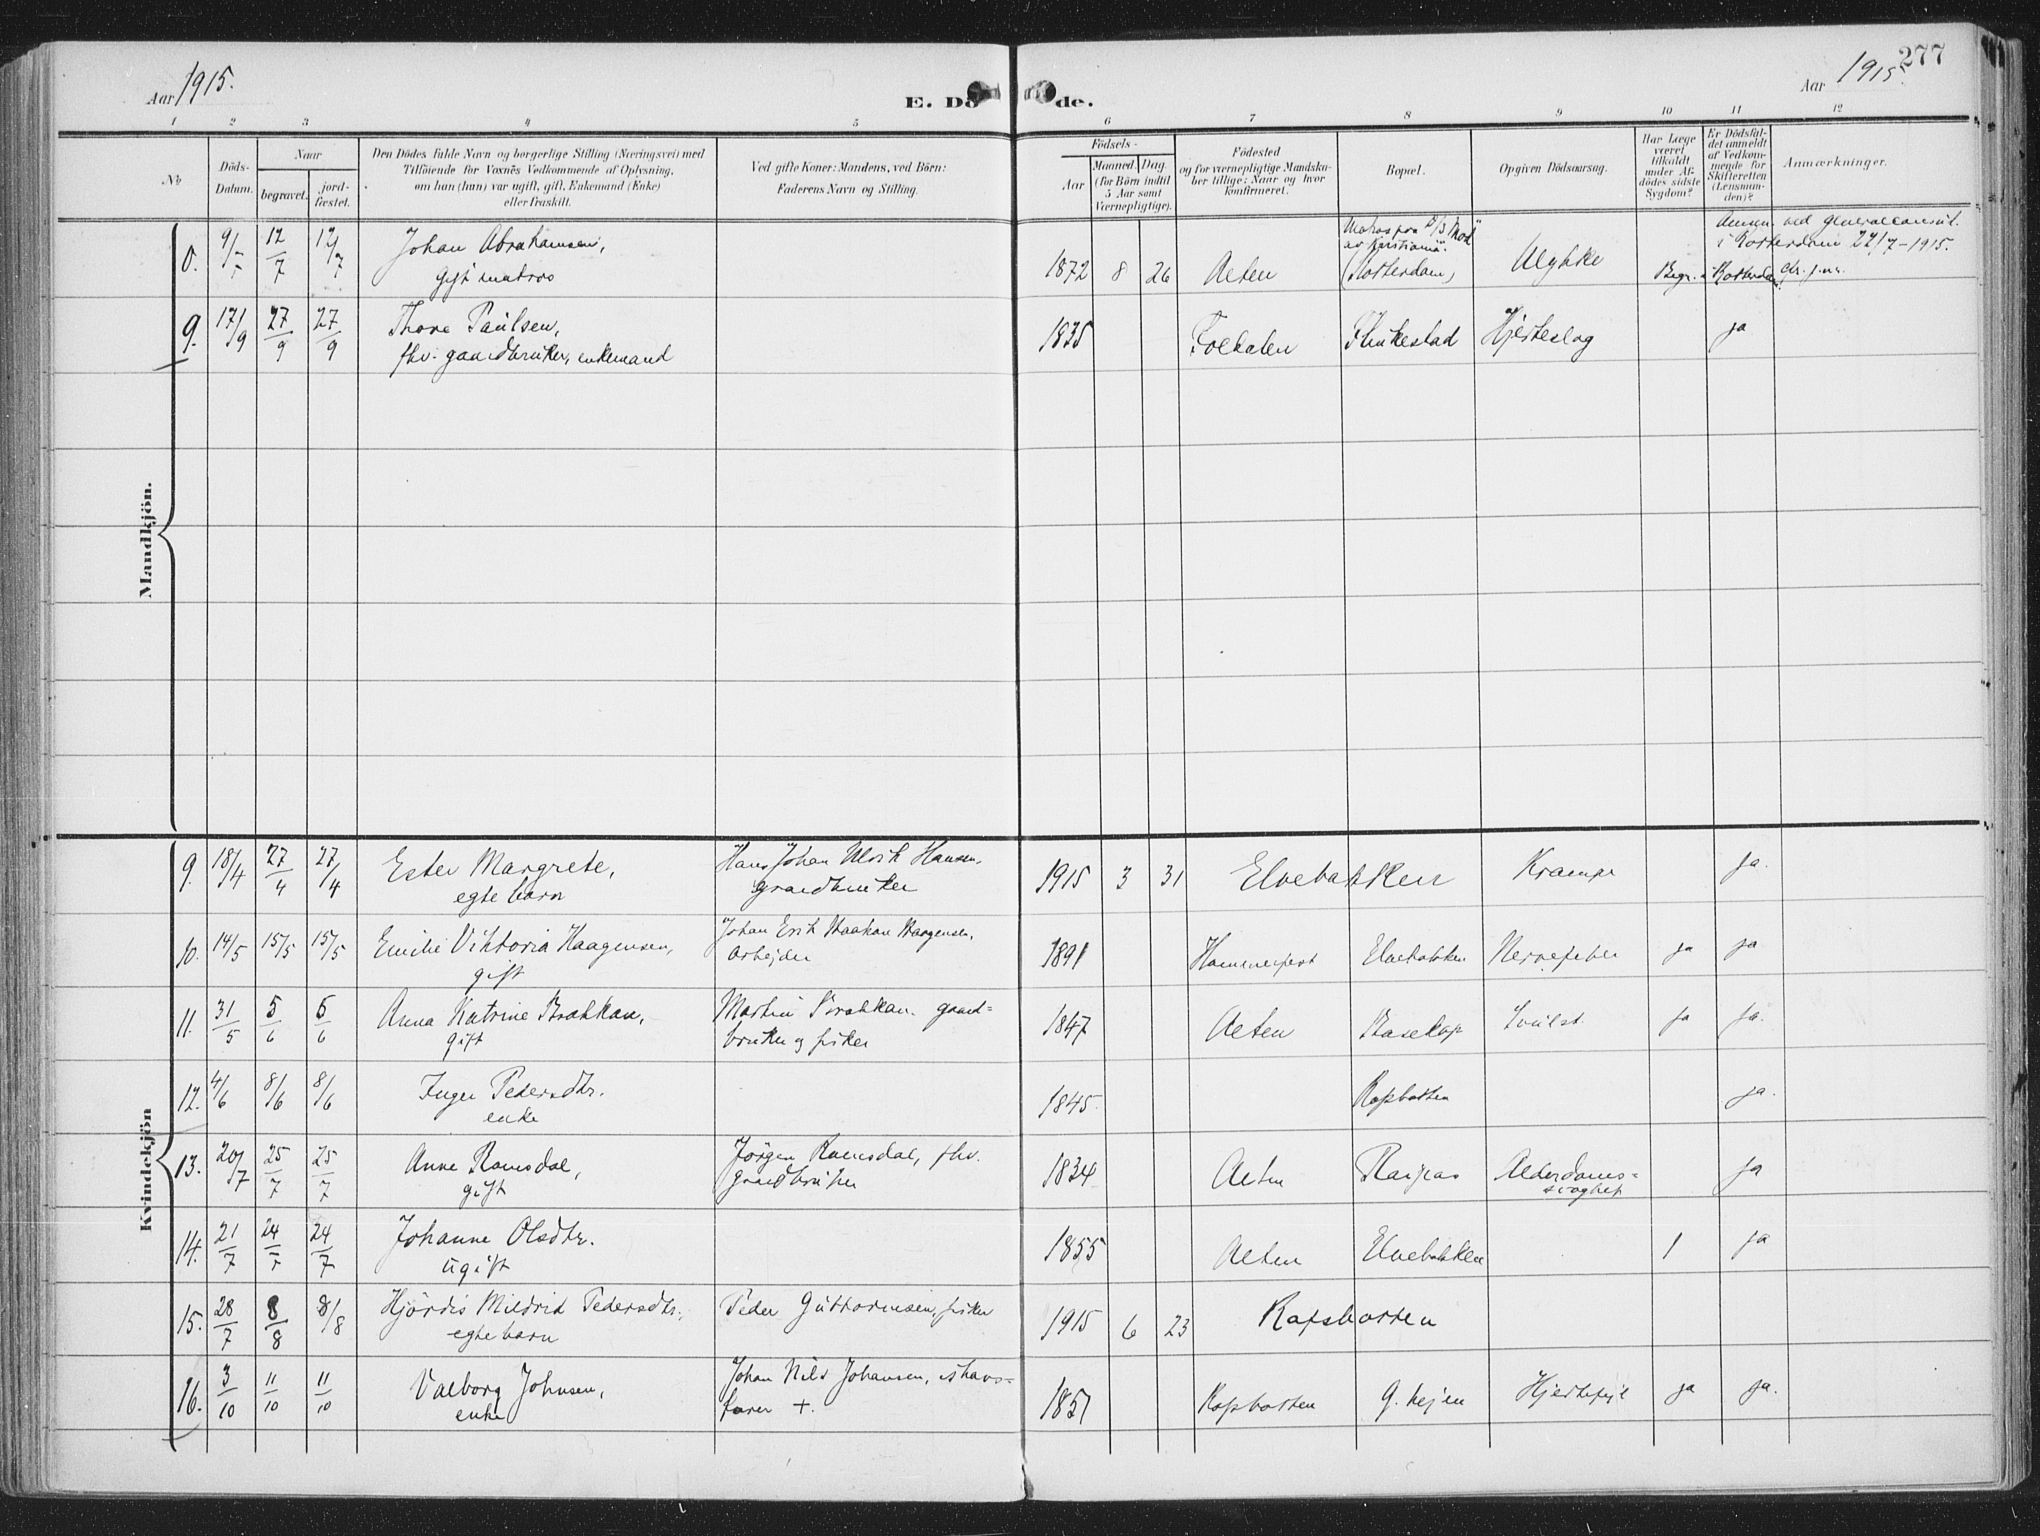 277
Aar 1915.
Aar 1915.
E. Dö de.
1 2 3 4 5 6 7 8 9 10 11 12
No
Döds-
Datum.
Naar
begravet.
jord-
fæstet.
Den Dödes fulde Navn og borgerlige Stilling (Næringsvei) med
Tilföiende for Voxnes Vedkommende af Oplysning,
om han (hun) var ugift, gift, Enkemand (Enke)
eller fraskilt.
Ved gifte Koner: Mandens, ved Börn:
Faderens Navn og Stilling.
Födsels-
Aar
Maaned.
Dag.
(for Börn indtil
5 Aar samt
Værnepligtige).
Födested
og for værnepligtige Mandska-
ber tillige: Naar og hvor
konfirmeret.
Bopæl.
Opgiven Dödsaarsag.
Har Læge
været
tilkaldt
under Af-
dödes sidste
Sygdom?
Er Dödsfal-
det anmeldt
af Vedkom-
mende for
Skifteretten
(Lensman-
den)?
Anmærkninger.
Mandkjön.
8. 9/7 12/7 12/7 Johan Abrahamsen,
gift matros
1872 8 26 Alten
(Rotterdam) Ulykke
ved Generalconsul.
i Rotterdam 22/7-1915.
Begr. i Rotterdam
9. 17/9 27/9 27/9 Thore Paulsen,
fhv. gaardbruker, enkemand
1835 Hjerteslag ja
Kvindekjön
9. 18/4 27/4 27/4 Ester Margrete,
egte barn
Hans Johan Ulrik Hansen,
gaardbruker
1915 3 31 Elvebakken Krampe ja.
10. 14/5 15/5 15/5 Emilie Viktoria Haagensen,
gift
Johan Erik Haakon Haagensen,
Arbejder
1891 Hammerfest Elvebakken Nervefeber ja ja
11. 31/5 5/6 5/6 Anna Katrine Brakkan,
gift
Martin Brakkan. gaard=
bruker og fisker
1847 Alten Bosekop Svulst ja ja.
12. 4/6 8/6 8/6 Inger Pedersdtr.
enke
1845. Rafsbotten ja.
13. 20/7 25/7 25/7 Anne Romsdal,
gift
Jörgen Romsdal, fhv.
gaardbruker
1834 Alten Raipas Alderdoms=
svaghet ja
14. 21/7 24/7 24/7 Johanne Olsdtr.
ugift
1855 Alten Elvebakken 1 ja
15. 28/7 8/8 8/8 Hjördis Mildrid Pedersdtr.
egte barn
Peder Guttormsen, fisker
1915 6 23 Rafsbotten
16. 3/10 11/10 11/10 Valborg Johnsen,
enke
Johan Nils Johansen, ishavs=
farer +.
1851 Rafsbotten Hjertefejl ja ja.